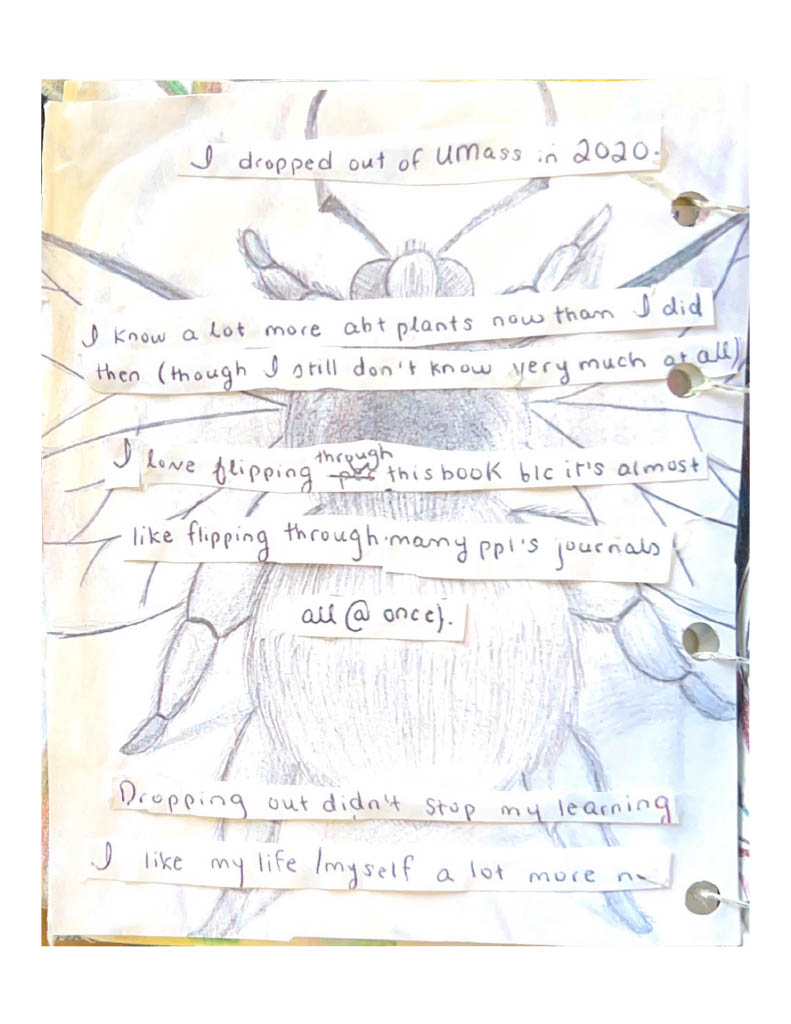 I dropped out of UMass in 2020.
I know a lot more abt plants now than I did
then (though I still don't know very much at all)
I love flipping through this book b/c it's almost
like flipping through many ppl's journals
all @ once).
Dropping out didn't stop my learning
I like my life/myself a lot more